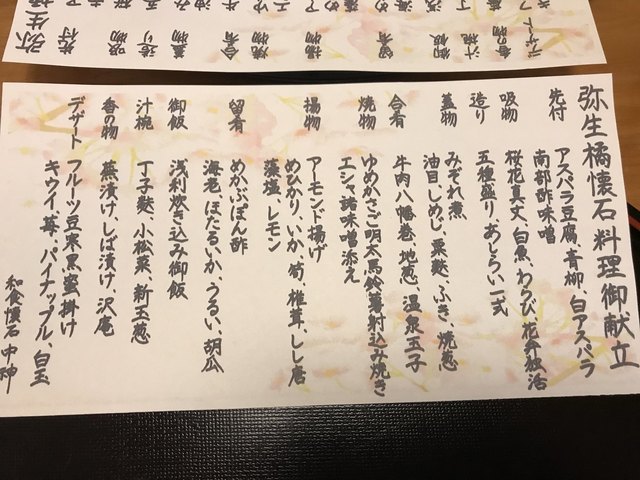 弥生橘懐石料理御献立
先付 アスパラ豆腐、青柳、白アスパラ
南部酢味噌
吸物 桜花真丈、白魚、わらび、花弁独活
造り 五種盛り、あしらい一式
蓋物 みぞれ煮
油目、しめじ、粟麩、ふき、焼葱
合肴 牛肉八幡巻、地葱、温泉玉子
焼物 ゆめかさご明太馬鈴薯射込み焼き
エシャ諸味噌添え
揚物 アーモンド揚げ
めひかり、いか、筍、椎茸、しし唐
藻塩、レモン
留肴 めかぶぽん酢
海老、ほたるいか、うるい、胡瓜
御飯 浅利炊き込み御飯
汁椀 丁子麩、小松菜、新玉葱
香の物 蕪漬け、しば漬け、沢庵
デザート フルーツ豆寒黒蜜掛け
キウイ、苺、パイナップル、白玉
和食懐石 中神
先付
吸物
造り
蓋物
合肴
焼物
揚物
留肴
御飯
汁椀
香の物
デザート